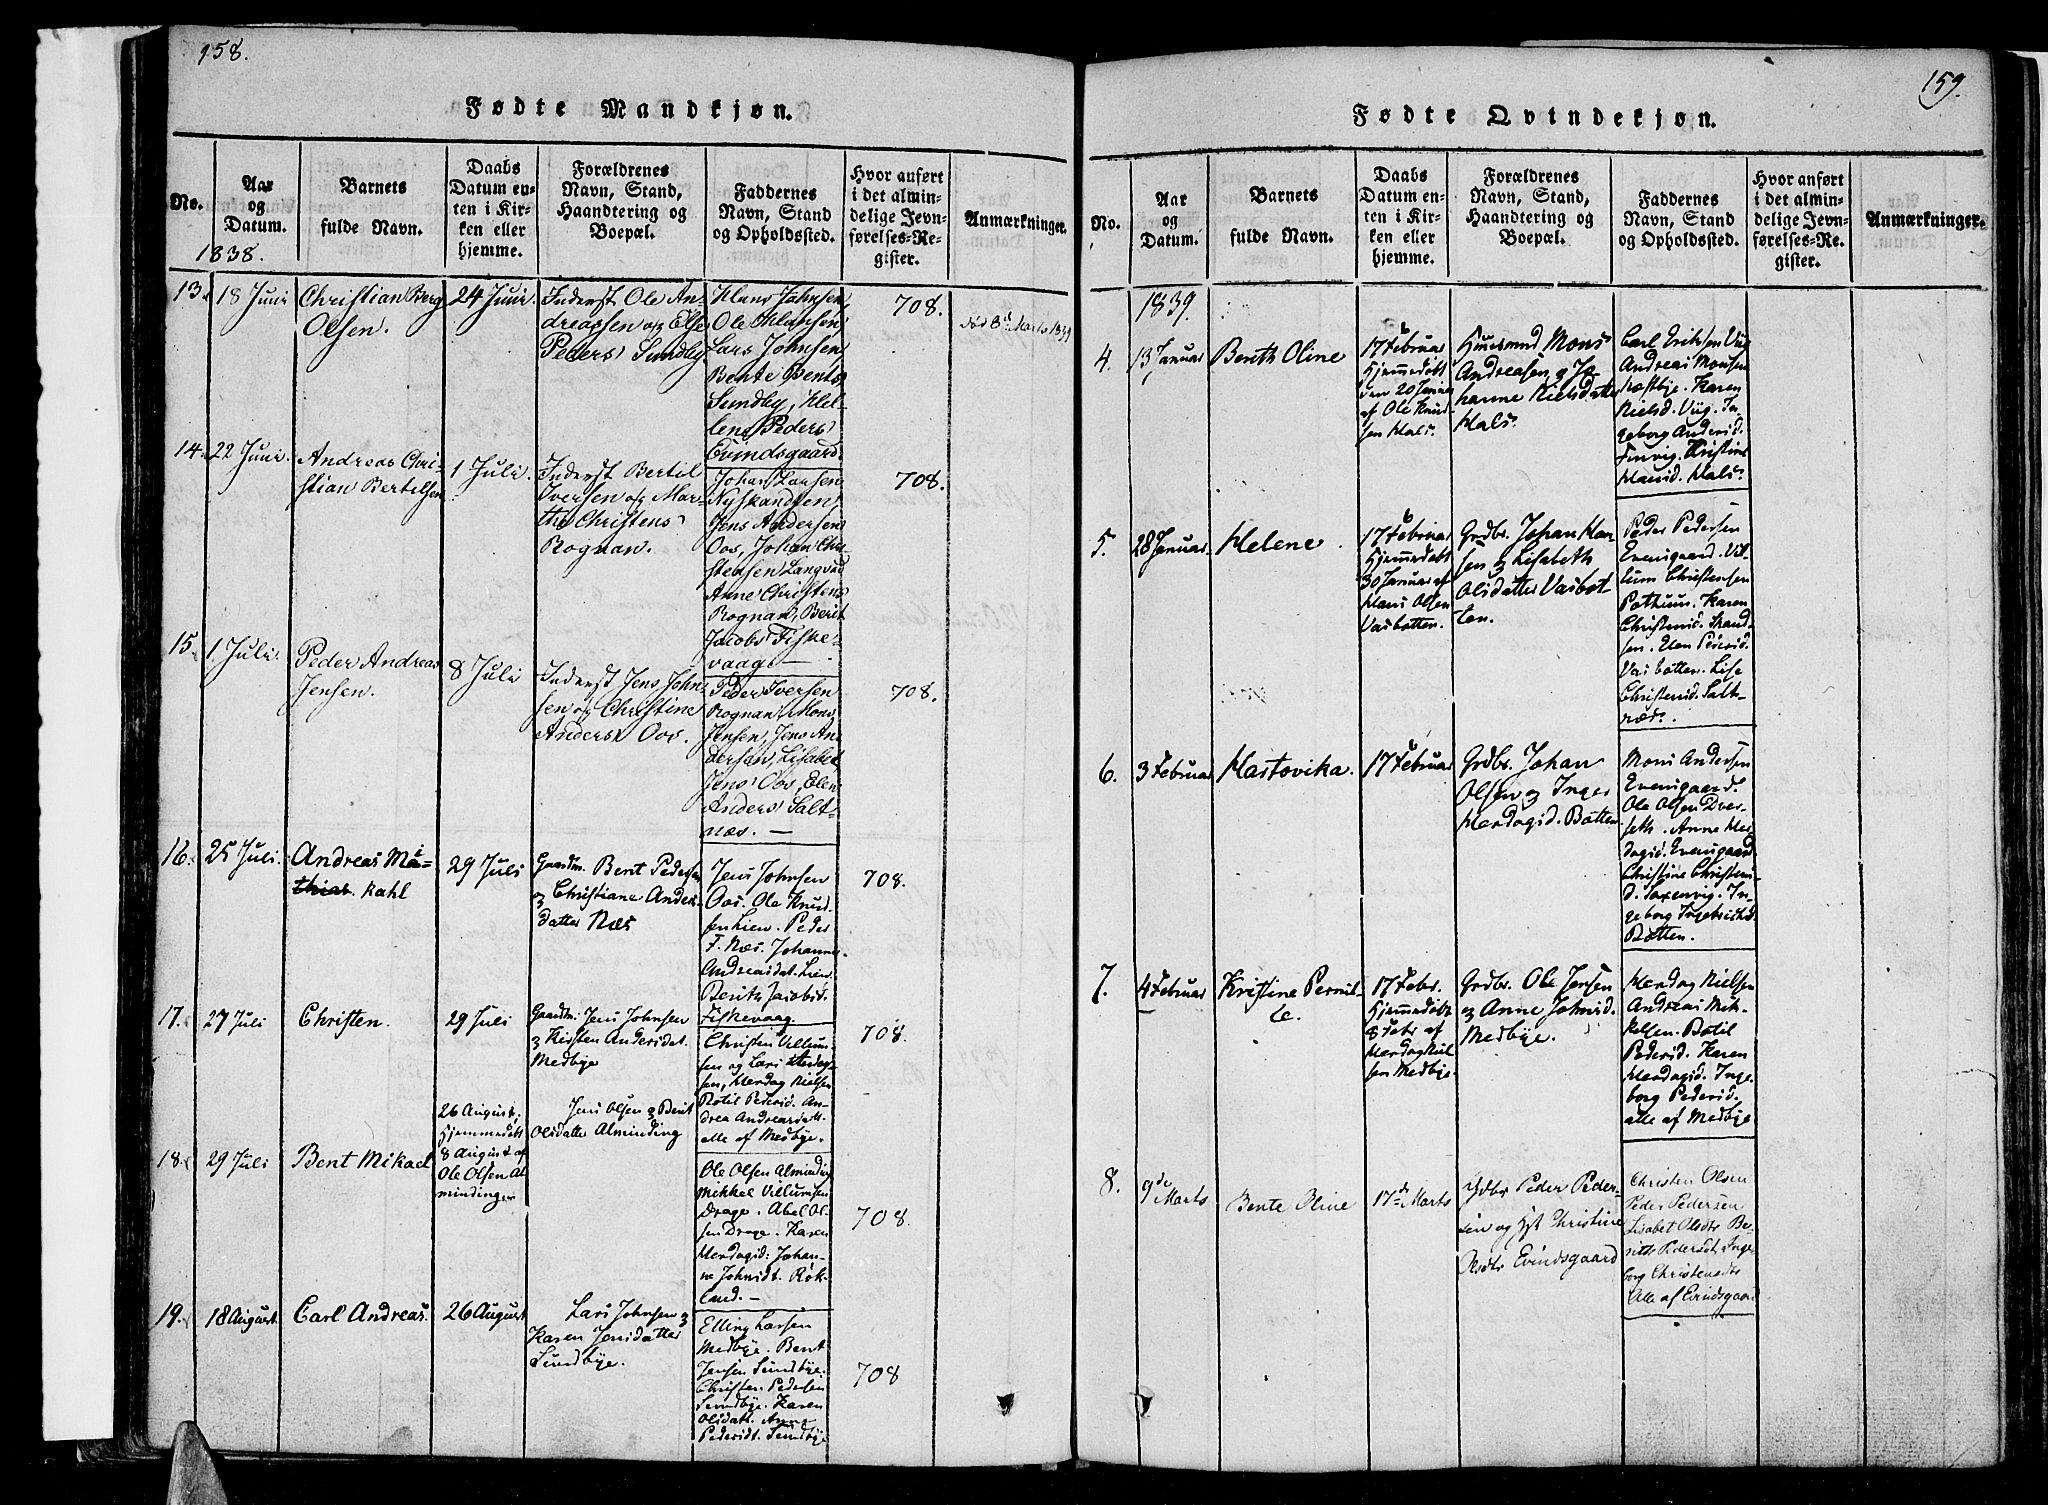 158.
Fødte Mandkjøn.
No.
Aar
og
Datum.
1838.
Barnets
fulde Navn.
Daabs
Datum en-
ten i Kir-
ken eller
hjemme.
Forældrenes
Navn, Stand,
Haandtering og
Boepæl.
Faddernes
Navn, Stand
og Opholdssted.
Hvor anført
i det almin-
delige Jevn-
førelses-Re-
gister.
Anmærkninger.
13.
18 Juni
Christian Berg
Olsen.
24 Juni.
Inderst Ole An-
dreassen og Else
Peders Sundby
Hans Johnsen,
Ole Hansen
Lars Johnsen
Bente Bents
Sundby, Hel-
lene Peders
Evindsgaard.
708.
død 8de Marts 1839
14.
22 Juni.
Andreas Chri-
stian Bertelsen
1 Juli.
Inderst Bertil
Iversen og Mar-
the Christens
Rognan.
Johan Larsen
Nyskandsen,
Jens Andersen
Oos, Johan Chri-
stensen Langvad
Anne Christens
Rognan, Berit
Jacobs Fiske-
vaag. —
708.
15.
1. Juli.
Peder Andreas
Jensen.
8 Juli
Inderst Jens John-
sen og Christine
Anders Oos.
Peder Iversen
Rognan, Mons
Jensen, Jens An-
dersen, Lisabet
Jens Oos, Elen
Anders Salt-
næs. —
708.
16.
25 Juli.
Andreas Mi-
thias. kahl
29 Juli
Gaardm. Bent Pedersen
og Christiane Anders-
datter Næs
Jens Johnsen
Oos. Ole Knud-
sen Lien. Peder
F. Næs. Johanna
Andreasdat. Lien.
Berith Jacobsd.
Fiskevaag.
708.
17.
27 Juli
Christen.
29 Juli
Gaardm: Jens Johnsen
og Kirsten Andersdat.
Medbye
Christen Villum-
sen og Lars
sen, Herdag Nielsen
Botil Pedersd. An-
drea Andreasdatt.
alle af Medbye.
708.
18.
29 Juli
Bent Mikael
26 August.
Hjemmedøbt
8 August af
Ole Olsen Al-
mindingen
Jens Olsen og Berit
Olsdatter Alminding
Ole Olsen Alminding
Mikkel Villumsen
Drage. Abel Ol-
sen Drage. Karen
Herdagsd: Johan-
ne Johnsdt. Røk-
land. —
708.
19.
18 August.
Carl Andreas.
26 August
Lars Johnsen og
Karen Jensdatter
Sundbye.
Elling Larsen
Medbye. Bent
Jensen Sundbye.
Christen Pedersen
Sundbye. Karen
Olsdatt. Anne
Pedersdt. Sundbye
708
159.
Fødte Qvindekjøn.
No.
Aar
og
Datum.
Barnets
fulde Navn.
Daabs
Datum en-
ten i Kir-
ken eller
hjemme.
Forældrenes
Navn, Stand,
Haandtering og
Boepæl.
Faddernes
Navn, Stand
og Opholdssted.
Hvor anført
i det almin-
delige Jevn-
førelses-Re-
gister.
Anmærkninger.
1839.
4.
13 Januar
Berith Oline
17 Februar
Hjemmedøbt
den 20 Januar
af Ole Knud-
sen Hals.
Huusmand Mons
Andreasen og Jo-
hanne Nielsdatter
Hals.
Carl Eriksen Viig
Andreas Monsen
Næstbye. Karen
Nielsd. Viig. In-
geborg Andersd.
Kristine
Hansd. Hals.
5.
28 Januar.
Helene
17 Februar
Hjemmedøbt
30 Januar af
Hans Olsen
Vasbotten.
Grdbr. Johan Han-
sen og Lisabeth
Olsdatter Vasbot-
ten.
Peder Pedersen
Evensgaard. Vil-
lum Christensen
Pothuus. Karen
Christensd. Rand-
sen. Elen Pedersd.
Vasbotten. Lise
Christensd. Salt-
næs.
6.
3 Februar
Hartovika.
17 Februar
Grdbr. Johan
Olsen og Inger
Herdagsd. Botten
Mons Andersen
Evensgaard.
Ole Olsen Dver-
seth. Anne Her-
dagsd. Evensgaard
Christine Christens-
d. Saxenvig. In-
geborg Ingebrictsd.
Botten.
7.
4 Februar
Kristine Pernil-
le.
17 Febr.
Hjemmedøbt
8 Febr af
Herdag Niel
sen Medbye.
Grdbr. Ole Jensen
og Anne Johnsd.
Medbye.
Herdag Nielsen
Andreas Mik-
kelsen. Botil
Pedersd. Karen
Herdagsd. Inge-
borg Pedersd.
alle af Medbye
8.
9de
Marts
Bente Oline
17de Marts
Grdbr Peder Peder-
sen og Hst Christine
Olsdtr Evindsgaard
Christen Olsen
Peder Pedersen
Lisabet Olsdtr Be-
rith Pedersdt, Inge
borg Christensdtr
Alle af Evindsgaard